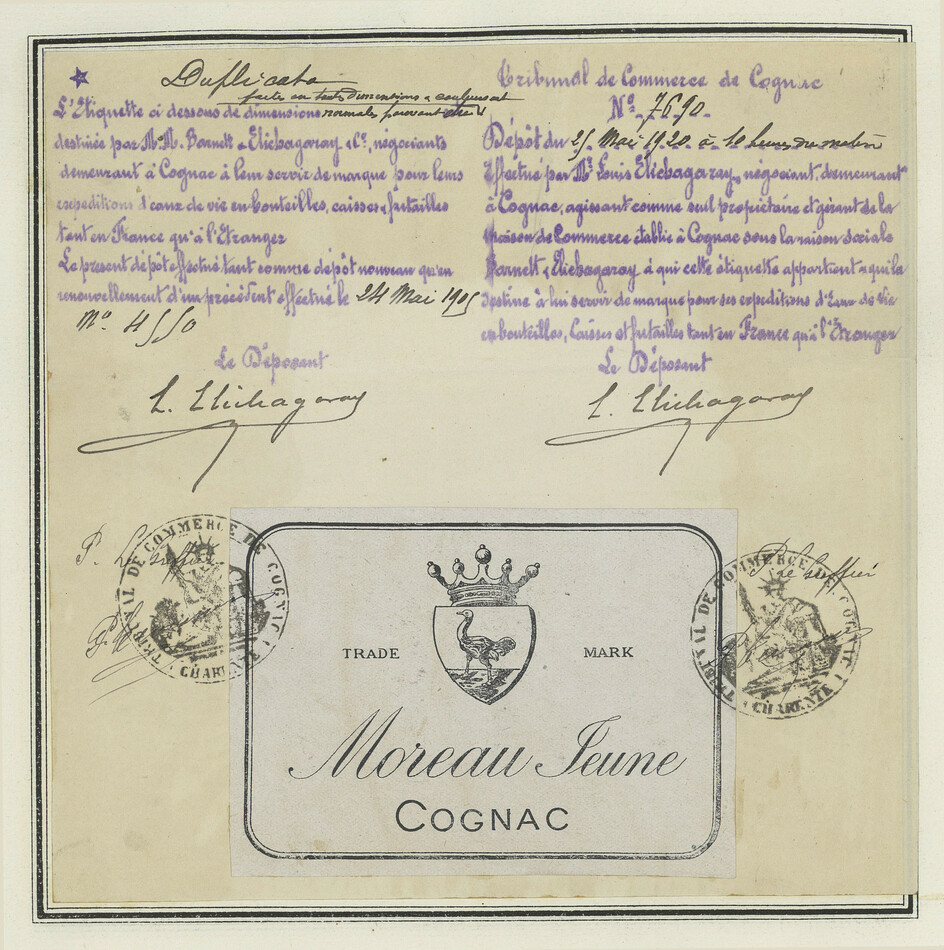 Duplicata
faite en toutes dimensions & couleurs et
L'Etiquette ci dessous de dimensions normales pouvant être
destinée par MM. Barnett & Elichagaray & Cie, négociants
demeurant à Cognac à leur servir de marque pour leurs
expeditions d'eaux de vie en bouteilles, caisses & futailles
tant en France qu'à l'Etranger
Le present dépôt effectué tant comme dépôt nouveau qu'en
renouvellement d'un précédent effectué le 24 Mai 1905
No. 4550
Le Déposant
L. Elichagaray
Tribunal de Commerce de Cognac
No. 7690
Dépôt du 25 Mai 1920 à 10 heures du matin
Effectué par Mr Louis Elichagaray, négociant, demeurant
à Cognac, agissant comme seul propriétaire et gérant de la
Maison de Commerce établie à Cognac sous la raison sociale
Barnett & Elichagaray à qui cette étiquette appartient & qui la
destine à lui servir de marque pour ses expeditions d'Eaux de Vie
en bouteilles, Caisses et futailles tant en France qu'à l'Etranger
Le Déposant
L. Elichagaray
P. Le Greffier
TRIBUNAL DE COMMERCE DE COGNAC
CHARENTE
TRADE MARK
Moreau Jeune
COGNAC
P. Le Greffier
TRIBUNAL DE COMMERCE DE COGNAC
CHARENTE